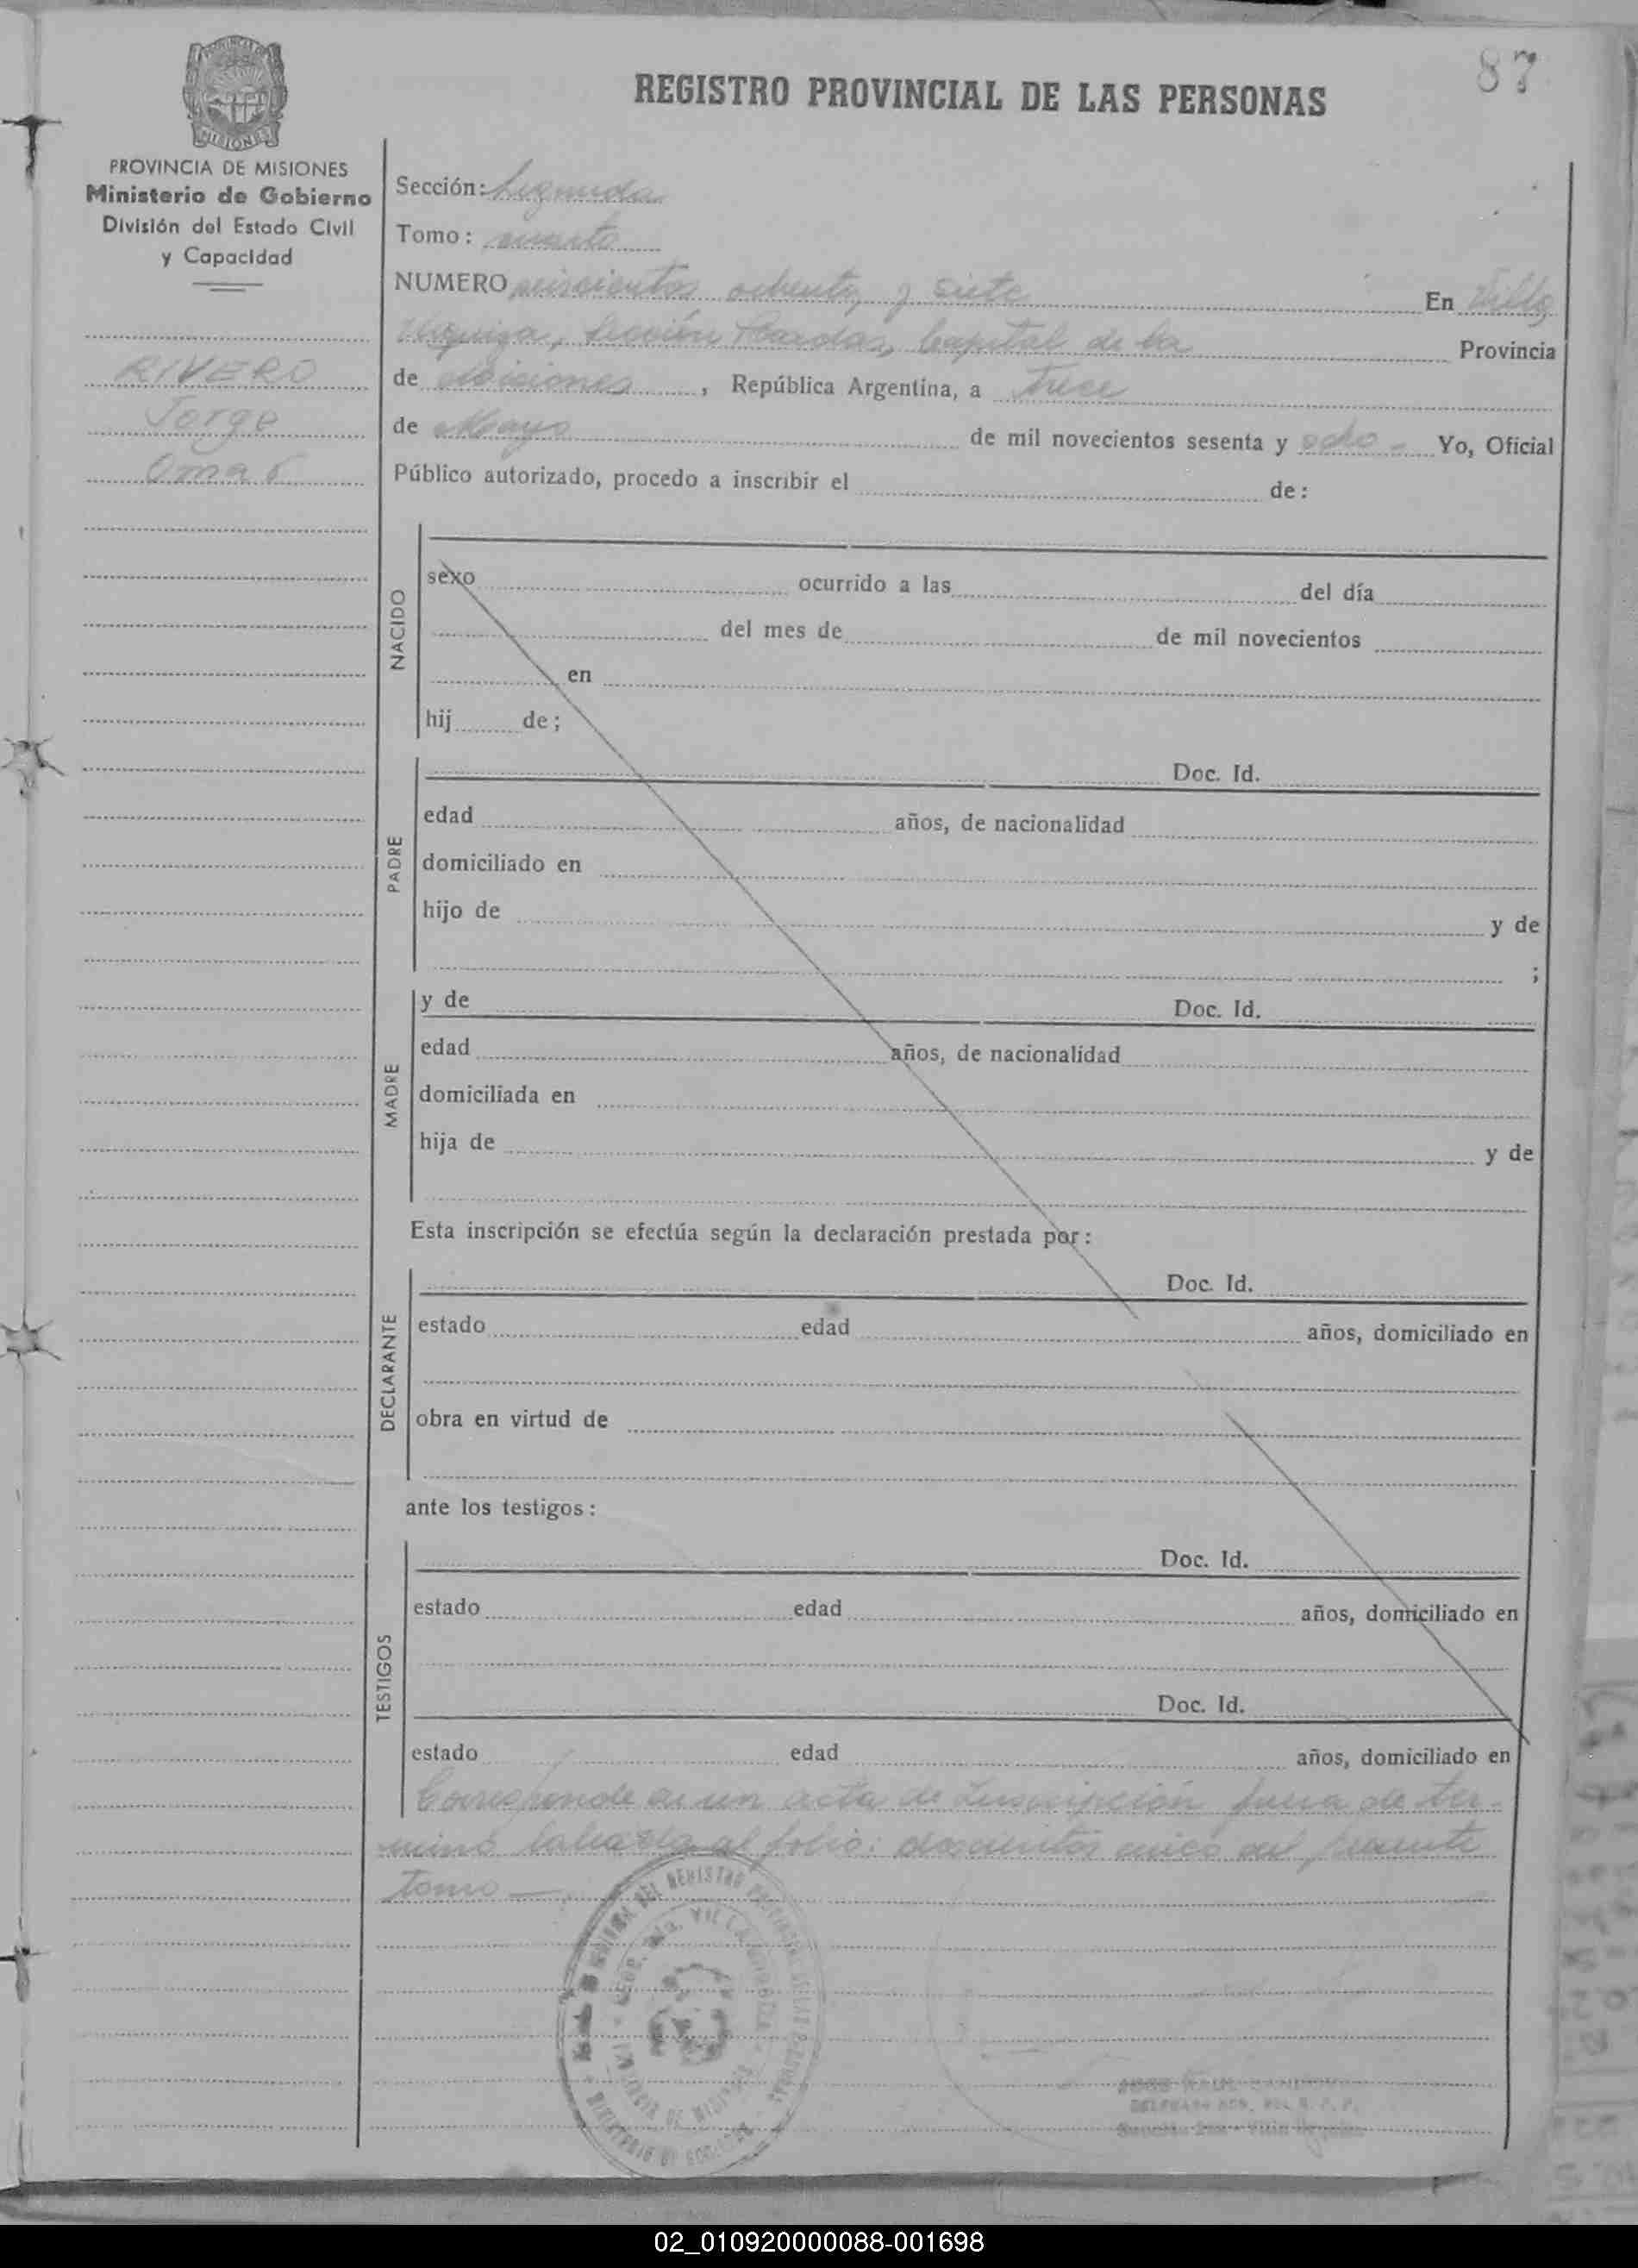 87
REGISTRO PROVINCIAL DE LAS PERSONAS
PROVINCIA DE MISIONES
Ministerio de Gobierno
División del Estado Civil
y Capacidad
RIVERO
Jorge
Omar
Sección: Segunda
Tomo: cuarto
NUMERO seiscientos ochenta y siete En Villa
Urquiza, Sección Capital de la Provincia
de Misiones, República Argentina, a trece
de Mayo de mil novecientos sesenta y ocho - Yo, Oficial
Público autorizado, procedo a inscribir el de:
NACIDO
sexo ocurrido a las del día
del mes de de mil novecientos
en
hij de;
PADRE
Doc. Id.
edad años, de nacionalidad
domiciliado en
hijo de y de
;
MADRE
y de Doc. Id.
edad años, de nacionalidad
domiciliada en
hija de y de
Esta inscripción se efectúa según la declaración prestada por:
DECLARANTE
Doc. Id.
estado edad años, domiciliado en
obra en virtud de
ante los testigos:
TESTIGOS
Doc. Id.
estado edad años, domiciliado en
Doc. Id.
estado edad años, domiciliado en
Corresponde a un acta de Inscripción fuera de ter-
mino labrada al folio: doscientos cinco del presente
tomo
02_010920000088-001698